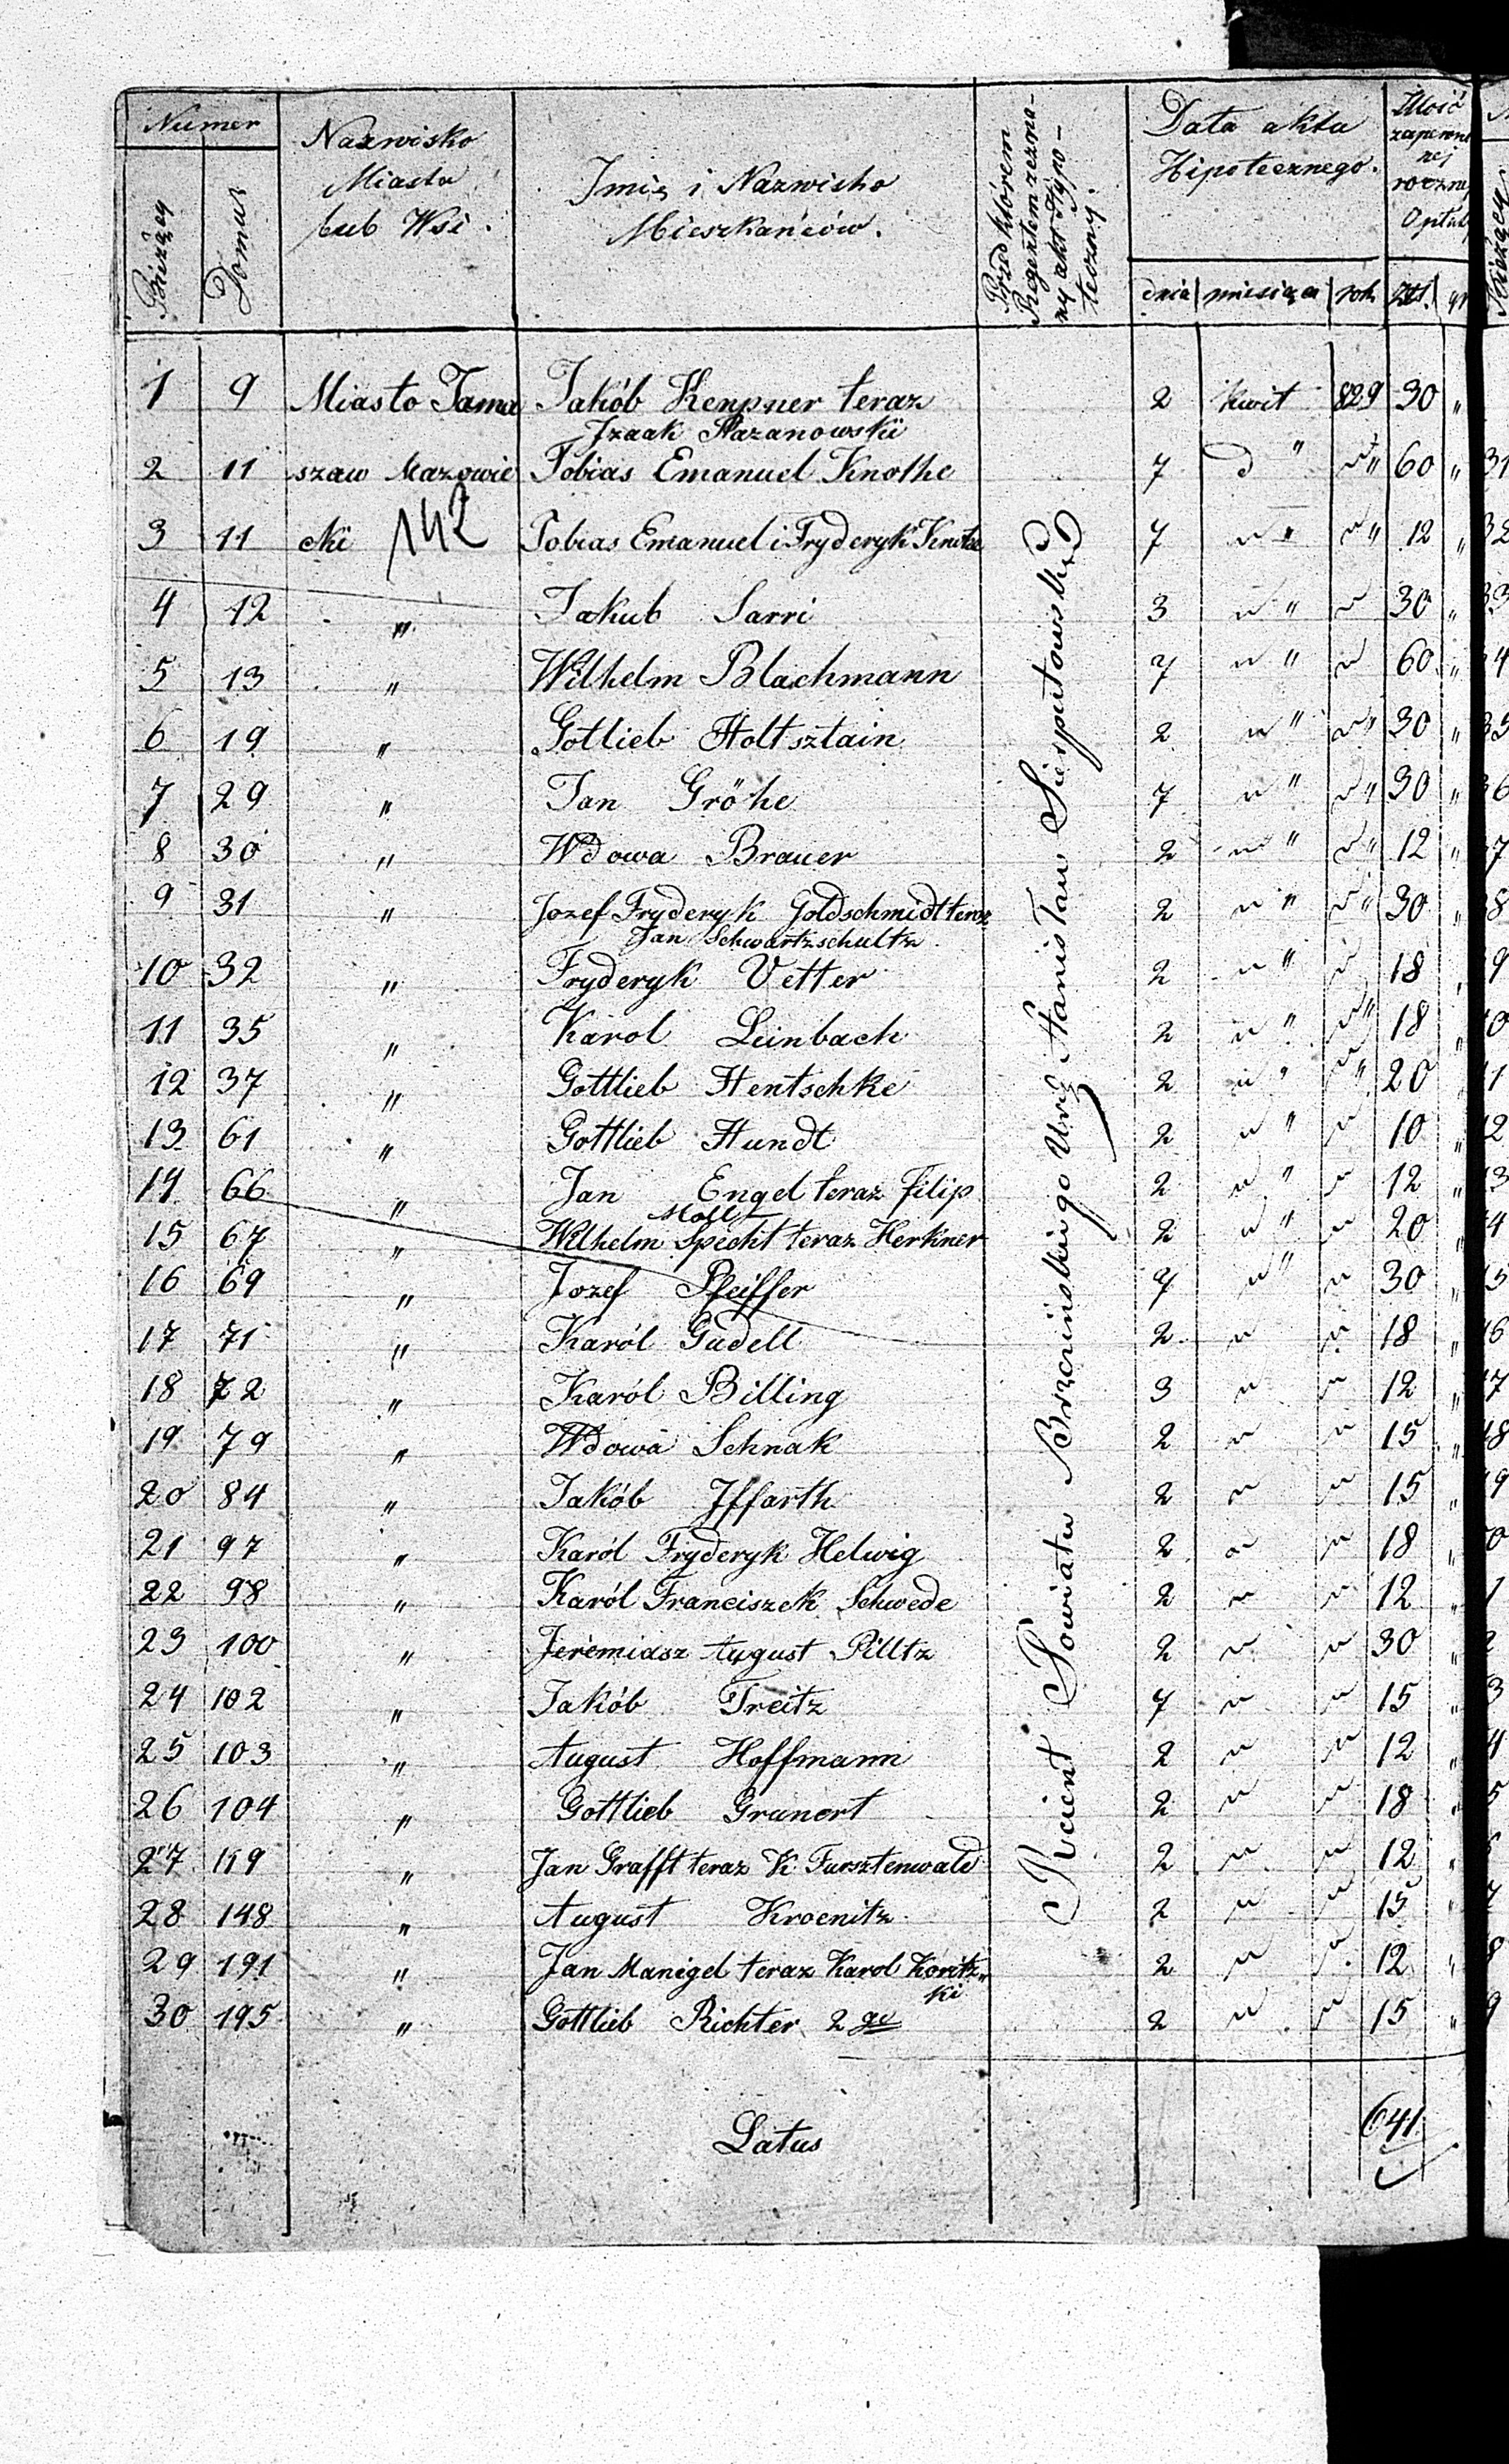 Numer
Bieżący
Domu
Nazwisko
Miasta
lub Wsi.
Imię i Nazwisko
Mieszkańców.
Przed którem
Regentem zezna-
ny akt Hypo-
teczny.
Data akta
Hipotecznego.
dnia miesiąca rok
Ilość
rocznej
Zł. gr
1 9 Miasto Toma Jakób Kempner teraz 2 kwit 829 30 "
Izaak Hazanowski
2 11 szaw Mazowie Tobias Emanuel Knothe 7 d " " 60 "
3 11 cki 142 Tobias Emanuel i Fryderyk Knothe 7 " " 12 "
4 12 " Jakub Sarri 3 " " 30 "
5 13 " Wilhelm Blachmann 7 " " 60 "
6 19 " Gotlieb Holtsztain 2 " " 30 "
7 29 " Jan Gröhe 7 " " 30 "
8 30 " Wdowa Brauer 2 " " 12 "
9 31 " Jozef Fryderyk Goldschmidt teraz 2 " " 30 "
Jan Schwartzschultz
10 32 " Fryderyk Vetter 2 " " 18 "
11 35 " Karol Leinbach 2 " " 18 "
12 37 " Gottlieb Hentschke 2 " " 20 "
13 61 " Gottlieb Hundt 2 " " 10 "
14 66 " Jan Engel teraz Filip 2 " " 12 "
Moll
15 67 " Wilhelm Specht teraz Herkner 2 " " 20 "
16 69 " Jozef Pfeiffer 7 " " 30 "
17 71 " Karól Gudell 2 " " 18 "
18 72 " Karól Billing 3 " " 12 "
19 79 " Wdowa Schnak 2 " " 15 "
20 84 " Jakób Iffarth 2 " " 15 "
21 97 " Karól Fryderyk Helwig 2 " " 18 "
22 98 " Karól Franciszek Schwede 2 " " 12 "
23 100 " Jeremiasz August Pilltz 2 " " 30 "
24 102 " Jakób Treitz 7 " " 15 "
25 103 " August Hoffmann 2 " " 12 "
26 104 " Gottlieb Grunert 2 " " 18 "
27 119 " Jan Grafft teraz K. Fursztenwald 2 " " 12 "
28 148 " August Kroenitz 2 " " 15 "
29 191 " Jan Manigel teraz Karol Koritz- 2 " " 12 "
ki
30 195 " Gottlieb Richter 2go 2 " " 15 "
Rejent Powiatu Brzezińskiego Stanisław
Latus 641